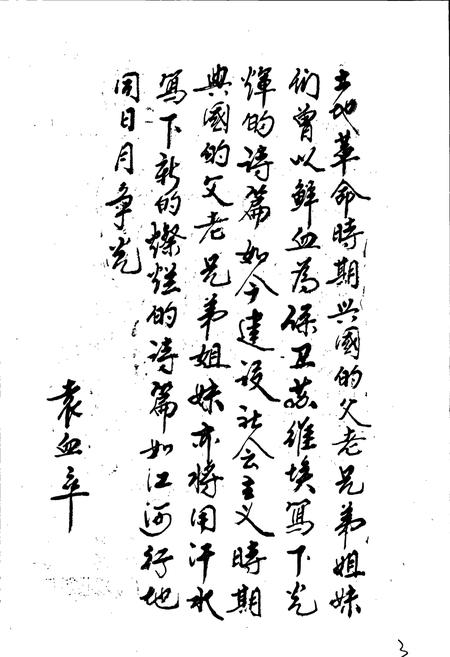 土地革命時期兴國的父老兄弟姐妹
们曾以鲜血為保卫苏维埃写下光
輝的詩篇如今建设社会主义時期
興國的父老兄弟姐妹亦将用汗水
寫下新的燦爛的詩篇如江河行地
同日月争光
袁血卒
3